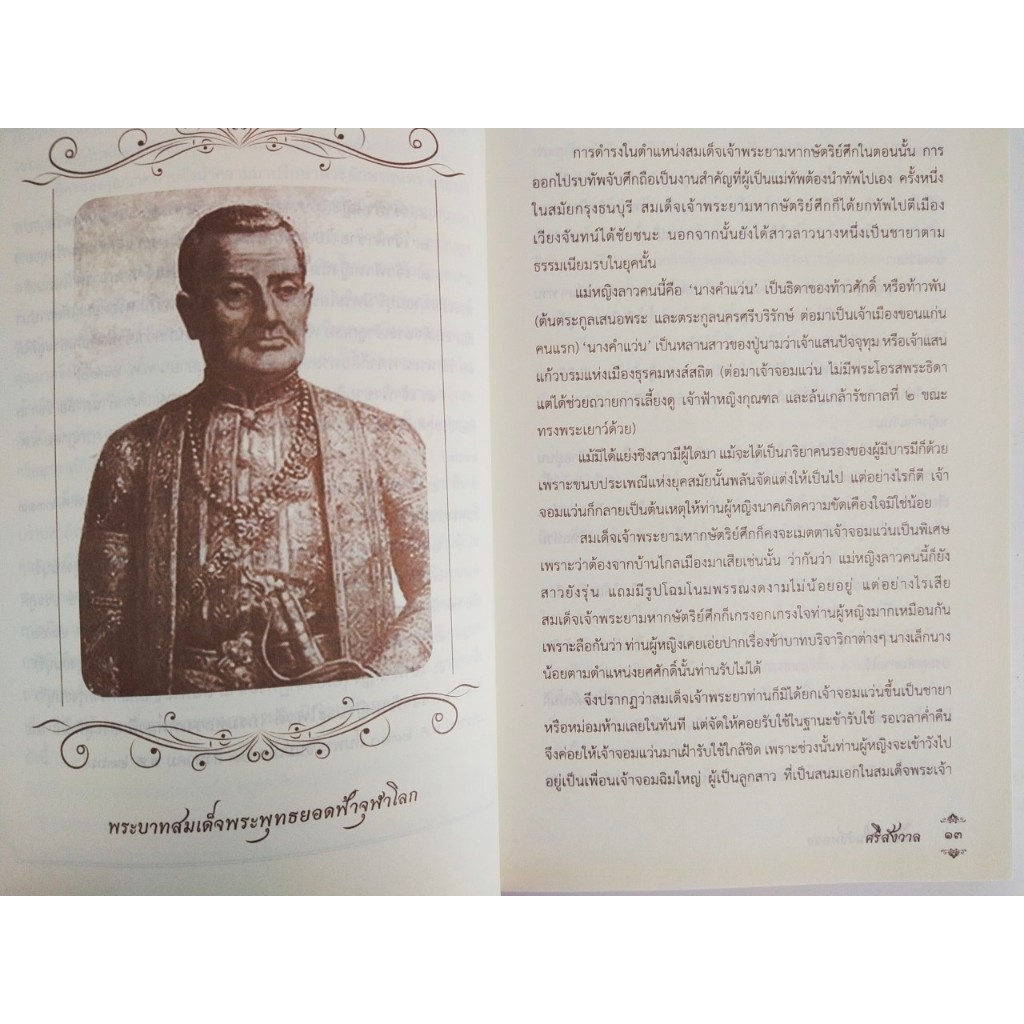 พระบาทสมเด็จพระพุทธยอดฟ้าจุฬาโลก
การดำรงในตำแหน่งสมเด็จเจ้าพระยามหากษัตริย์ศึกในตอนนั้น การ
ออกไปรบทัพจับศึกถือเป็นงานสำคัญที่ผู้เป็นแม่ทัพต้องนำทัพไปเอง ครั้งหนึ่ง
ในสมัยกรุงธนบุรี สมเด็จเจ้าพระยามหากษัตริย์ศึกก็ได้ยกทัพไปตีเมือง
เวียงจันทน์ได้ชัยชนะ นอกจากนั้นยังได้สาวลาวนางหนึ่งเป็นชายาตาม
ธรรมเนียมรบในยุคนั้น
แม่หญิงลาวคนนี้คือ ‘นางคำแว่น’ เป็นธิดาของท้าวศักดิ์ หรือท้าวพัน
(ต้นตระกูลเสนอพระ และตระกูลนครศรีบริรักษ์ ต่อมาเป็นเจ้าเมืองขอนแก่น
คนแรก) ‘นางคำแว่น’ เป็นหลานสาวของปู่นามว่าเจ้าแสนปัจจุทุม หรือเจ้าแสน
แก้วบรมแห่งเมืองธุรคมหงส์สถิต (ต่อมาเจ้าจอมแว่น ไม่มีพระโอรสพระธิดา
แต่ได้ช่วยถวายการเลี้ยงดู เจ้าฟ้าหญิงกุณฑล และล้นเกล้ารัชกาลที่ ๒ ขณะ
ทรงพระเยาว์ด้วย)
แม้มิได้แย่งชิงสวามีผู้ใดมา แม้จะได้เป็นภริยาคนรองของผู้มีบารมีก็ด้วย
เพราะขนบประเพณีแห่งยุคสมัยนั้นพลันจัดแต่งให้เป็นไป แต่อย่างไรก็ดี เจ้า
จอมแว่นก็กลายเป็นต้นเหตุให้ท่านผู้หญิงนาคเกิดความขัดเคืองใจมิใช่น้อย
สมเด็จเจ้าพระยามหากษัตริย์ศึกก็คงจะเมตตาเจ้าจอมแว่นเป็นพิเศษ
เพราะว่าต้องจากบ้านไกลเมืองมาเสียเช่นนั้น ว่ากันว่า แม่หญิงลาวคนนี้ก็ยัง
สาวยังรุ่น แถมมีรูปโฉมโนมพรรณงดงามไม่น้อยอยู่ แต่อย่างไรเสีย
สมเด็จเจ้าพระยามหากษัตริย์ศึกก็เกรงอกเกรงใจท่านผู้หญิงมากเหมือนกัน
เพราะลือกันว่า ท่านผู้หญิงเคยเอ่ยปากเรื่องข้าบาทบริจาริกาต่างๆ นางเล็กนาง
น้อยตามตำแหน่งยศศักดิ์นั้นท่านรับไม่ได้
จึงปรากฏว่าสมเด็จเจ้าพระยาท่านก็มิได้ยกเจ้าจอมแว่นขึ้นเป็นชายา
หรือหม่อมห้ามเลยในทันที แต่จัดให้คอยรับใช้ในฐานะข้ารับใช้ รอเวลาค่ำคืน
จึงค่อยให้เจ้าจอมแว่นมาเฝ้ารับใช้ใกล้ชิด เพราะช่วงนั้นท่านผู้หญิงจะเข้าวังไป
อยู่เป็นเพื่อนเจ้าจอมฉิมใหญ่ ผู้เป็นลูกสาว ที่เป็นสนมเอกในสมเด็จพระเจ้า
ศรีสังวาล ๑๓